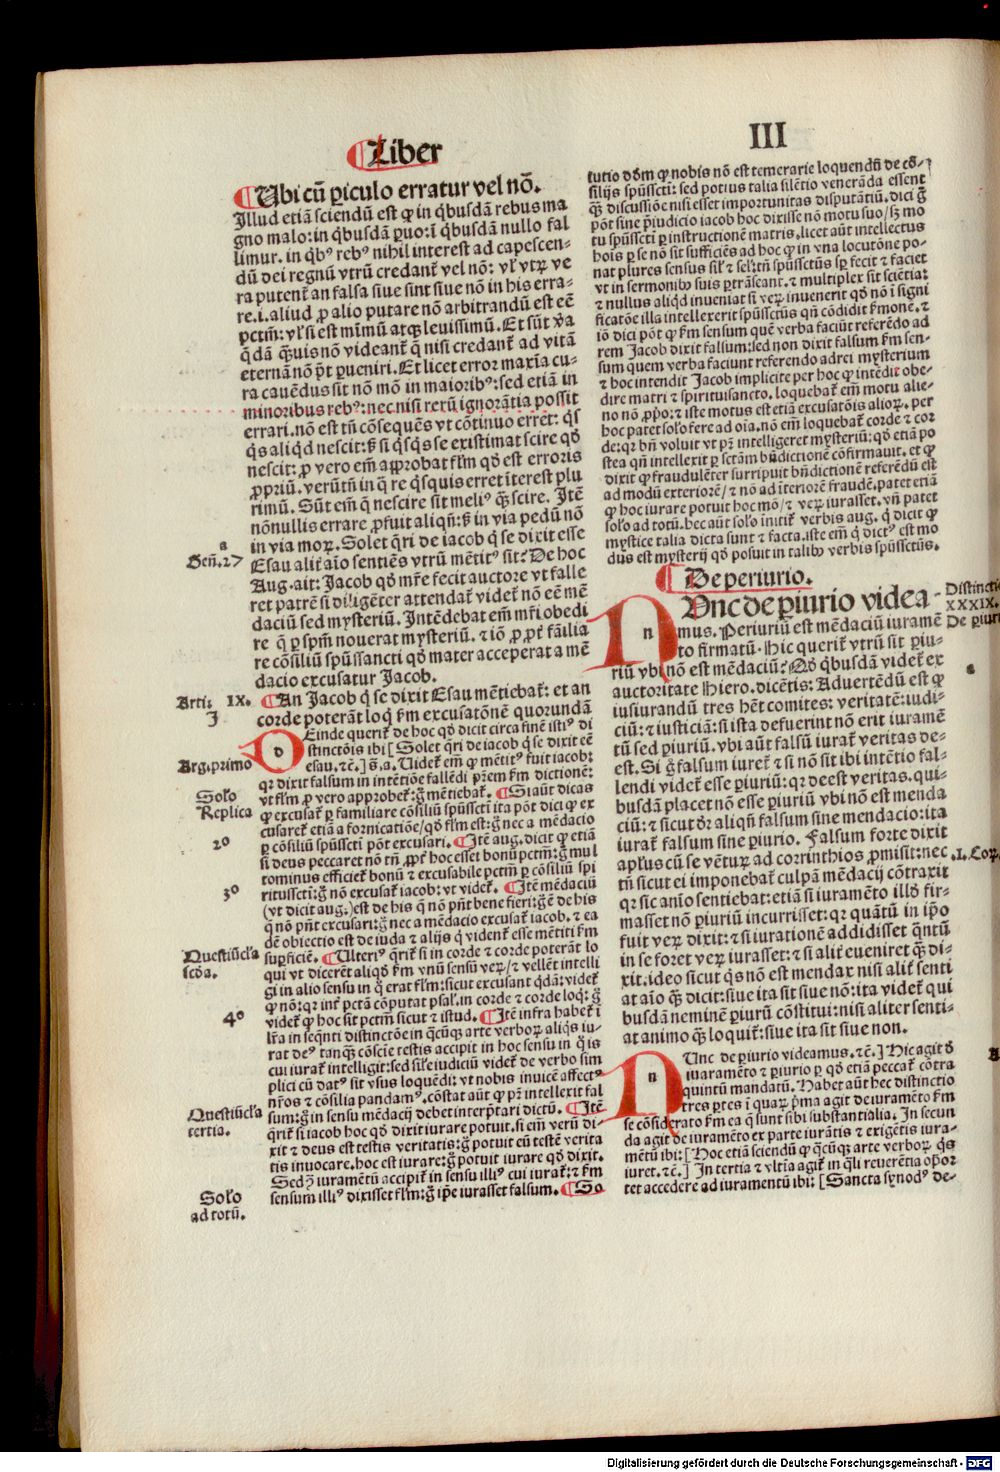 Liber
III
Ubi cū ꝑiculo erratur vel nō.
Illud etiā sciendū est ꝙ in q̇busdā rebus ma
gno malo: in q̇busdā ꝑuo: ī q̇busdā nullo fal
limur. in q̇bꝰ rebꝰ nihil interest ad capescen-
dū dei regnū vtrū credant᷑ vel nō: vl̓ vtꝝ ve
ra putent᷑ an falsa siue sint siue nōn in his erra-
re .i. aliud ꝓ alio putare nō arbitrandū est eē
pctm̄: vl̓ si est mīmū atqꝫ leuissimū. Et sūt v̓a
q̄dā q̄uis nō videant᷑ q̄ nisi credant᷑ ad vitā
eternā nō p̄t ꝑueniri. Et licet error maxīa cu-
ra cauēdus sit nō mō in maioribꝰ: sed etiā in
minoribus rebꝰ: nec nisi rerū ignorātia possit
errari. nō est tn̄ cōsequēs vt cōtinuo erret: q̇s
q̇s aliq̇d nescit: ꝫ si q̇sq̇s se existimat scire qd̓
nescit: ꝓ vero em̄ approbat flm̄ qd̓ est erroris
ꝓpriū. verūtn̄ in q̄ re q̇squis erret īterest plu
rimū. Sūt em̄ q̄ nescire sit meliꝰ q̄ꝫ scire. Itē
nōnullis errare ꝓfuit aliqn̄: ꝫ in via pedū nō
in via moꝝ. Solet q̄ri de iacob q̇ se dixit esse
Esau alit᷑ aīo sentiēs vtrū mētitꝰ sit? De hoc
Aug. ait: Jacob qd̓ mr̄e fecit auctore vt falle
ret patrē si diligēter attendat᷑ videt᷑ nō eē mē
daciū sed mysteriū. Intēdebat em̄ mr̄i obedi
re q̄ ꝑ spm̄ nouerat mysteriū. ⁊ iō ꝓpt᷑ fāilia
re cōsiliū spūssancti qd̓ mater acceperat a mē
dacio excusatur Jacob.
a
Geñ. 27
Arti. IX.
An Jacob q̇ se dixit Esau mētiebat᷑: et an
corde poterāt loq̇ ẜm excusatōnē quorundā
1
Deinde querit᷑ de hoc qd̓ dicit circa finē istiꝰ di
stinctōis ibi [Solet q̄ri de iacob q̇ se dixit eē
Arg. primo
esau. ⁊c̄.] ꝫ. a. Uidet᷑ em̄ ꝙ mētitꝰ fuit iacob:
qr dixit falsum in intētiōe fallēdi pr̄em ẜm dictionē:
Solo
vt flm̄ ꝓ vero approbet᷑: g̊ mētiebat᷑. Si aūt dicas
Replica
ꝙ excusat᷑ ꝑ familiare cōsiliū spūssctī ita pōt dici ꝙ ex
cusaret᷑ etiā a fornicatiōe/ qd̓ flm̄ est: g̊ nec a mēdacio
2º
ꝑ cōsiliū spūssctī pōt excusari. Itē aug. dicit ꝙ etiā
si deus peccaret nō tn̄ ꝓpt᷑ hoc esset bonū pctm̄: g̊ mul
tominus efficiet᷑ bonū ⁊ excusabile pctm̄ ꝑ cōsiliū spi
3º
ritussctī: g̊ nō excusat᷑ iacob: vt videt᷑. Itē mēdaciū
(vt dicit aug.) est de his q̄ nō pn̄t bene fieri: g̊ ē de his
q̄ nō pn̄t excusari: g̊ nec a mēdacio excusat᷑ iacob. ⁊ ea
dē obiectio est de iuda ⁊ alijs q̇ vident᷑ esse mētiti ẜm
Questiūcl̓a
suꝑficiē. Ulteriꝰ q̄rit᷑ si in corde ⁊ corde poterāt lo
scd̓a.
qui vt dicerēt aliqd̓ ẜm vnū sensū veꝝ/ ⁊ vellēt intelli
gi in alio sensu in q̇ erat flm̄: sicut excusant q̇dā: videt᷑
ꝙ nō: qr int᷑ pctā cōputat psal̓. in corde ⁊ corde loq̇: g̊
4º
videt᷑ ꝙ hoc sit pctm̄ sicut ⁊ istud. Itē infra habet᷑ ī
lr̄a in seqn̄ti distinctōe in q̇cūqꝫ arte verboꝝ aliq̇s iu-
rat deꝰ tanq̄ꝫ cōsciē testis accipit in hoc sensu in q̇ is
cui iurat᷑ intelligit: sed sil̓e iudiciū videt᷑ de verbo sim
plici cū datꝰ sit vsus loquēdi: vt nobis inuicē affectꝰ
nr̄os ⁊ cōsilia pandamꝰ. cōstat aūt ꝙ pn̄ intellexit fal
Questiūcl̓a
sum: g̊ in sensu mēdacij debet interp̄tari dictū. Itē
tertia.
q̄rit᷑ si iacob hoc qd̓ dixit iurare potuit. si em̄ verū di-
xit ⁊ deus est testis veritatis: g̊ potuit eū testē verita
tis inuocare. hoc est iurare: g̊ potuit iurare qd̓ dixit.
Sed ꝫ iuramētū accipit᷑ in sensu illiꝰ cui iurat᷑: ⁊ ẜm
Solo
sensum illiꝰ dixisset flm̄: g̊ ip̄e iurasset falsum. So
ad totū.
lutio dōm ꝙ nobis nō est temerarie loquendū de cō-
silijs spūssctī: sed potius talia silētio venerāda essent
q̄ꝫ discussiōe nisi esset importunitas disputātiū. dici g̊
pōt sine p̄iudicio iacob hoc dixisse nō motu suo/ sꝫ mo
tu spūssctī ꝑ instructionē matris. licet aūt intellectus
hois ꝑ se nō sit sufficiēs ad hoc ꝙ in vna locutōne po-
nat plures sensus sil̓ ⁊ sel̓: tn̄ spūssctūs sꝑ fecit ⁊ faciet
vt in sermonibꝰ suis ꝑtrāseant. ⁊ multiplex sit sciētia:
⁊ nullus aliq̇d inueniat si veꝝ inuenerit qd̓ nō ī signi
ficatōe illa intellexerit spūssctūs qn̄ cōdidit ẜmonē. ⁊
iō dici pōt ꝙ ẜm sensum quē verba faciūt referēdo ad
rem Jacob dixit falsum: sed non dixit falsum ẜm sen-
sum quem verba faciunt referendo ad rei mysterium
⁊ hoc intendit Jacob implicite per hoc ꝙ intēdit obe-
dire matri ⁊ spirituisancto. loquebat᷑ em̄ motu alie-
no nō ꝓpo: ⁊ iste motus est etiā excusatōis alioꝝ. per
hoc patet solo fere ad oīa. nō em̄ loquebat᷑ corde ⁊ cor
de: qr bn̄ voluit vt pr̄ intelligeret mysteriū: qd̓ etiā po
stea qn̄ intellexit ꝑ sctām bn̄dictionē cōfirmauit. et ꝙ
dixit ꝙ fraudulēter surripuit bn̄dictionē referēdū est
ad modū exteriorē/ ⁊ nō ad īteriorē fraudē. patet etiā
ꝙ hoc iurare potuit hoc mō/ ⁊ veꝝ iurasset. vn̄ patet
solo ad totū. hec aūt solo initit᷑ verbis aug. q̇ dicit ꝙ
mystice talia dicta sunt ⁊ facta. iste em̄ q̇ dictꝰ est mo
dus est mysterij qd̓ posuit in talibꝰ verbis spūssctūs.
De periurio.
Distinctio
XXXIX.
De ꝑiurio
Nunc de ꝑiurio videa-
mus. Periuriū est mēdaciū iuramē
to firmatū. Hic querit᷑ vtrū sit ꝑiu-
riū vbi nō est mēdaciū? Qd̓ q̇busdā videt᷑ ex
a
auctoritate Hiero. dicētis: Aduertēdū est ꝙ
iusiurandū tres h̄et comites: veritatē: iudi-
ciū: ⁊ iusticiā: si ista defuerint nō erit iuramē
tū sed ꝑiuriū. vbi aūt falsū iurat᷑ veritas de-
est. Si g̊ falsum iuret᷑ ⁊ si nō sit ibi intētio fal-
lendi videt᷑ esse ꝑiuriū: qr deest veritas. qui-
busdā placet nō esse ꝑiuriū vbi nō est menda
ciū: ⁊ sicut dr̄ aliqn̄ falsum sine mendacio: ita
iurat᷑ falsum sine ꝑiurio. Falsum forte dixit
apl̓us cū se vētuꝝ ad corinthios ꝓmisit: nec
.1. Coꝝ.
tn̄ sicut ei imponebat᷑ culpā mēdacij cōtraxit
qr sic aīo sentiebat: etiā si iuramēto illd̓ fir-
masset nō ꝑiuriū incurrisset: qr quātū in ip̄o
fuit veꝝ dixit: ⁊ si iurationē addidisset q̄ntū
in se foret veꝝ iurasset: ⁊ si alit᷑ eueniret q̄ꝫ di-
xit. ideo sicut q̇s nō est mendax nisi alit᷑ senti
at aīo q̄ꝫ dicit: siue ita sit siue nō: ita videt᷑ qui
busdā neminē ꝑiurū cōstitui: nisi aliter senti-
at animo q̄ꝫ loquit᷑: siue ita sit siue non.
Nunc de ꝑiurio videamus. ⁊c̄.] Hic agit d̓
iuaramēto ⁊ ꝑiurio ꝑ qd̓ etiā peccat᷑ cōtra
quintū mandatū. Habet aūt hec distinctio
tres ꝑtes ī quaꝝ p̄ma agit de iuramēto ẜm
se cōsiderato ẜm ea q̄ sunt sibi substantialia. In secun
da agit de iuramēto ex parte iurātis ⁊ exigētis iura-
mētū ibi: [Hoc etiā sciendū ꝙ q̇cūqꝫ arte verboꝝ q̇s
iuret. ⁊c̄.] In tertia ⁊ vltīa agit᷑ in q̇li reuerētia opor
tet accedere ad iuramentū ibi: [Sancta synodꝰ de-
Digitalisierung gefördert durch die Deutsche Forschungsgemeinschaft - DFG